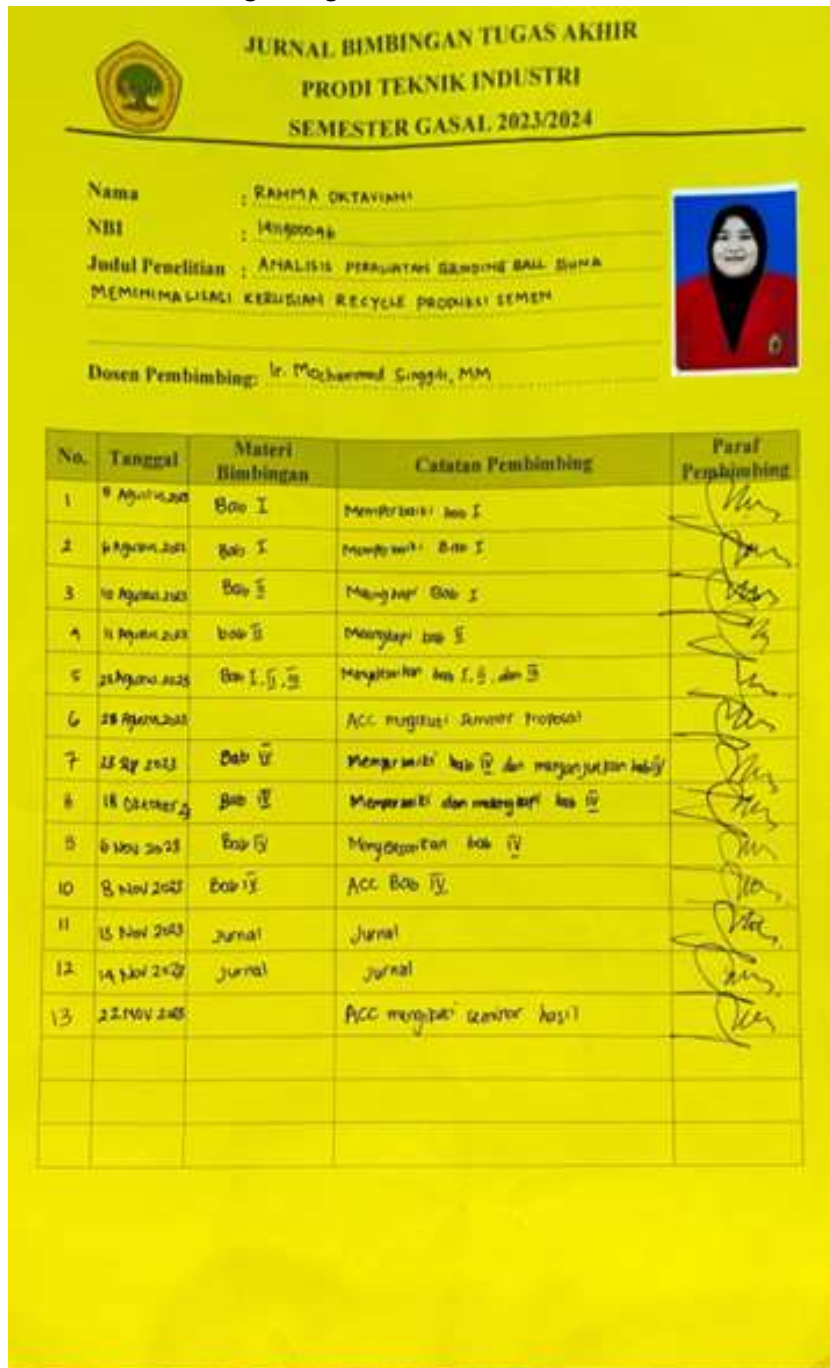 JURNAL BIMBINGAN TUGAS AKHIR
PRODI TEKNIK INDUSTRI
SEMESTER GASAL 2023/2024
Nama : RAHMA OKTAVIANI
NBI :
Judul Penelitian : ANALISIS PERAWATAN GRINDING BALL GUNA
MEMINIMALISASI RECYCLE PRODUKSI SEMEN
Dosen Pembimbing: Ir. Mochammad Singgih, MM
No. Tanggal Materi Bimbingan Catatan Pembimbing Paraf Pembimbing
1 Agustus 2023 Bab I Memperbaiki bab I
2 6 Agustus 2023 Bab I Memperbaiki Bab I
3 10 Agustus 2023 Bab II Melengkapi Bab
4 11 Agustus 2023 bab II Melengkapi bab II
5 Agustus 2023 Bab I, II, III Menyelesaikan bab I, II, dan III
6 28 Agustus 2023 ACC mengikuti seminar proposal
7 Sep 2023 Bab IV Memperbaiki bab IV dan melanjutkan bab IV
8 18 Oktober Bab IV Memperbaiki dan melengkapi bab IV
9 6 Nov 2023 Bab IV Menyelesaikan bab IV
10 8 Nov 2023 Bab IV ACC Bab IV
11 Nov 2023 Jurnal Jurnal
12 Nov 2023 Jurnal Jurnal
13 22 Nov 2023 ACC mengikuti seminar hasil